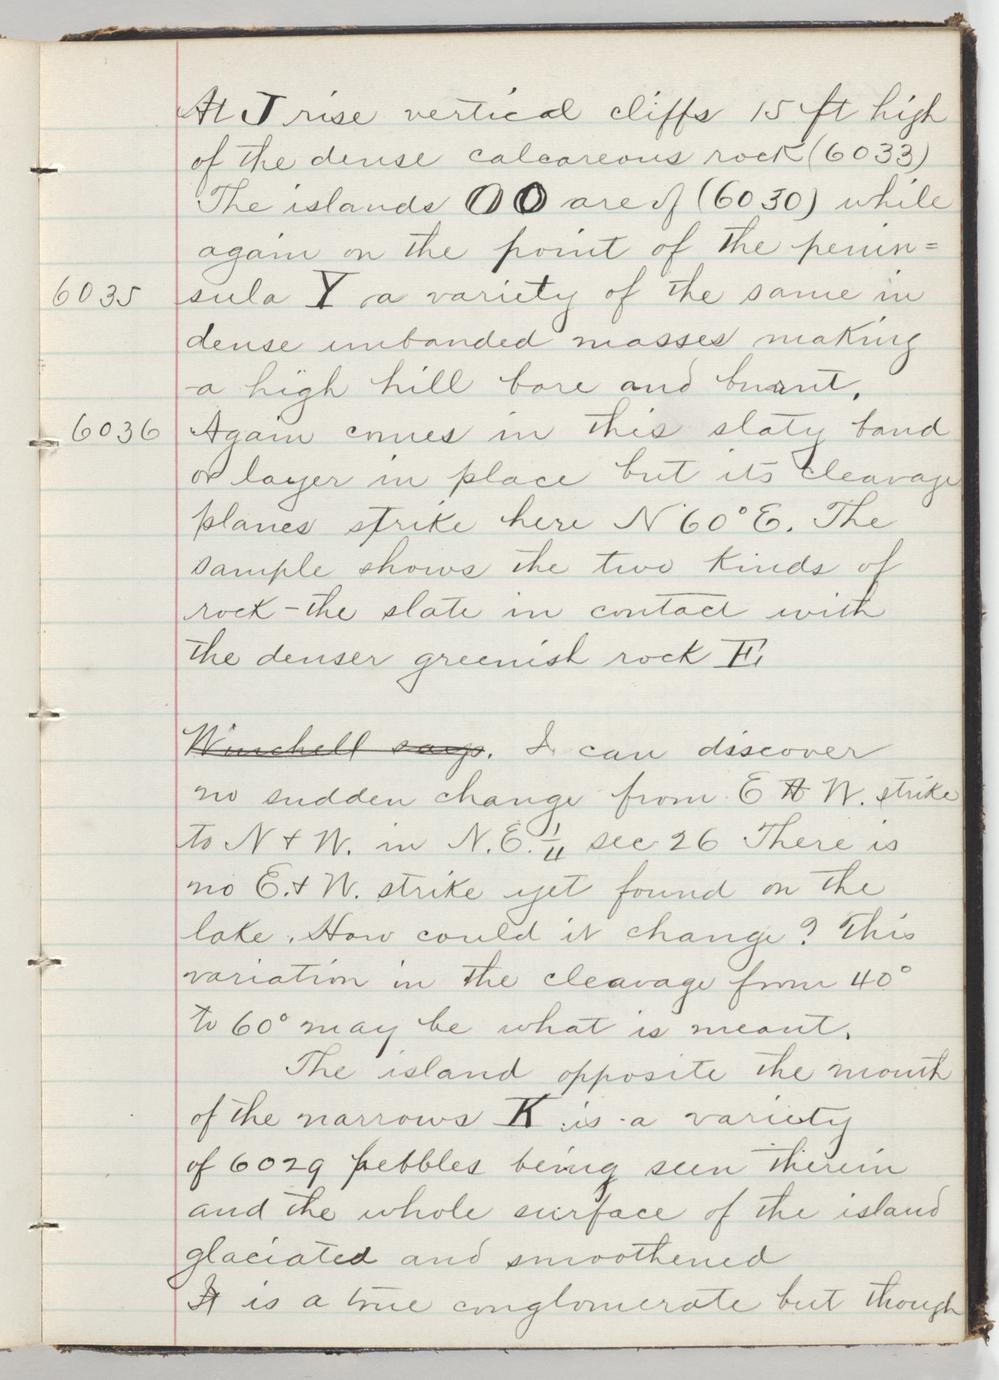 At J rise vertical cliffs 15 ft high
of the dense calcareous rock (6033)
The islands O O are of (6030) while
again on the point of the penin=
6035 sula Y a variety of the same in
dense unbanded masses making
a high hill bare and burnt.
6036 Again comes in this slaty band
or layer in place but its cleavage
planes strike here N 60° E. The
sample shows the two kinds of
rock - the slate in contact with
the denser greenish rock E.
Winchell says. I can discover
no sudden change from E & W. strike
to N & W. in N.E. 1/4 sec 26 There is
no E. & W. strike yet found on the
lake. How could it change? This
variation in the cleavage from 40°
to 60° may be what is meant.
The island opposite the mouth
of the narrows K is a variety
of 6029 pebbles being seen therein
and the whole surface of the island
glaciated and smoothened
It is a true conglomerate but though